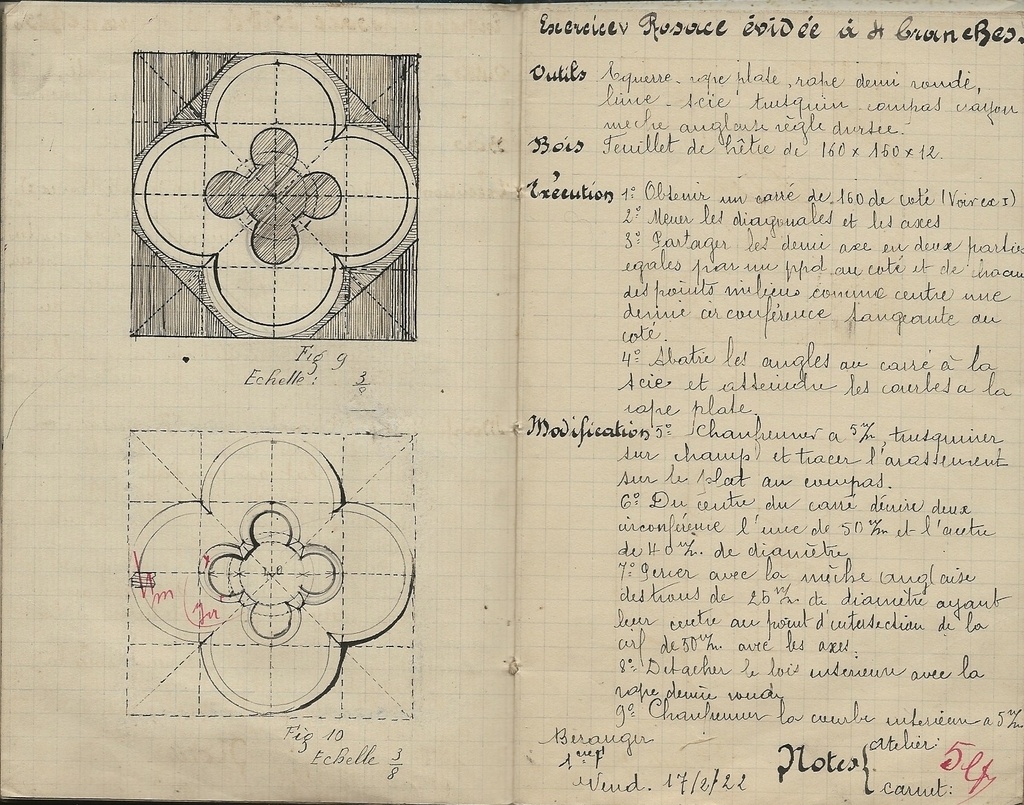 Fig 9
Echelle : 3/8
Fig 10
Echelle 3/8
Exercice V Rosace évidée à 4 branches.
Outils Equerre - rape plate, rape demi ronde,
lime - scie trusquin - compas crayon
mèche anglaise règle
Bois Feuillet de hêtre de 160 x 160 x 12.
Exécution 1º Obtenir un carré de 160 de coté (Voir ex I)
2º Mener les diagonales et les axes
3º Partager les demi axe en deux parties
egales par un ppd au coté et de chacun
des points milieux comme centre une
demie circonférence tangeante au
coté.
4º Abatre les angles au carré à la
scie et atteindre les courbes a la
rape plate.
Modification 5º Chanfreiner a 5 m/m, trusquiner
sur champ et tracer l'arassement
sur le plat au compas.
6º Du centre du carré décrire deux
circonférence l'une de 50 m/m et l'autre
de 40 m/m. de diamètre
7º Percer avec la mèche anglaise
des trous de 25 m/m de diamètre ayant
leur centre au point d'intersection de la
cirf de 50 m/m. avec les axes.
8º Détacher le bois interieur avec la
rape demie ronde
9º Chanfreiner la courbe interieur a 5 m/m
Beranger
Vend. 17/2/22
Notes { atelier:
carnet: